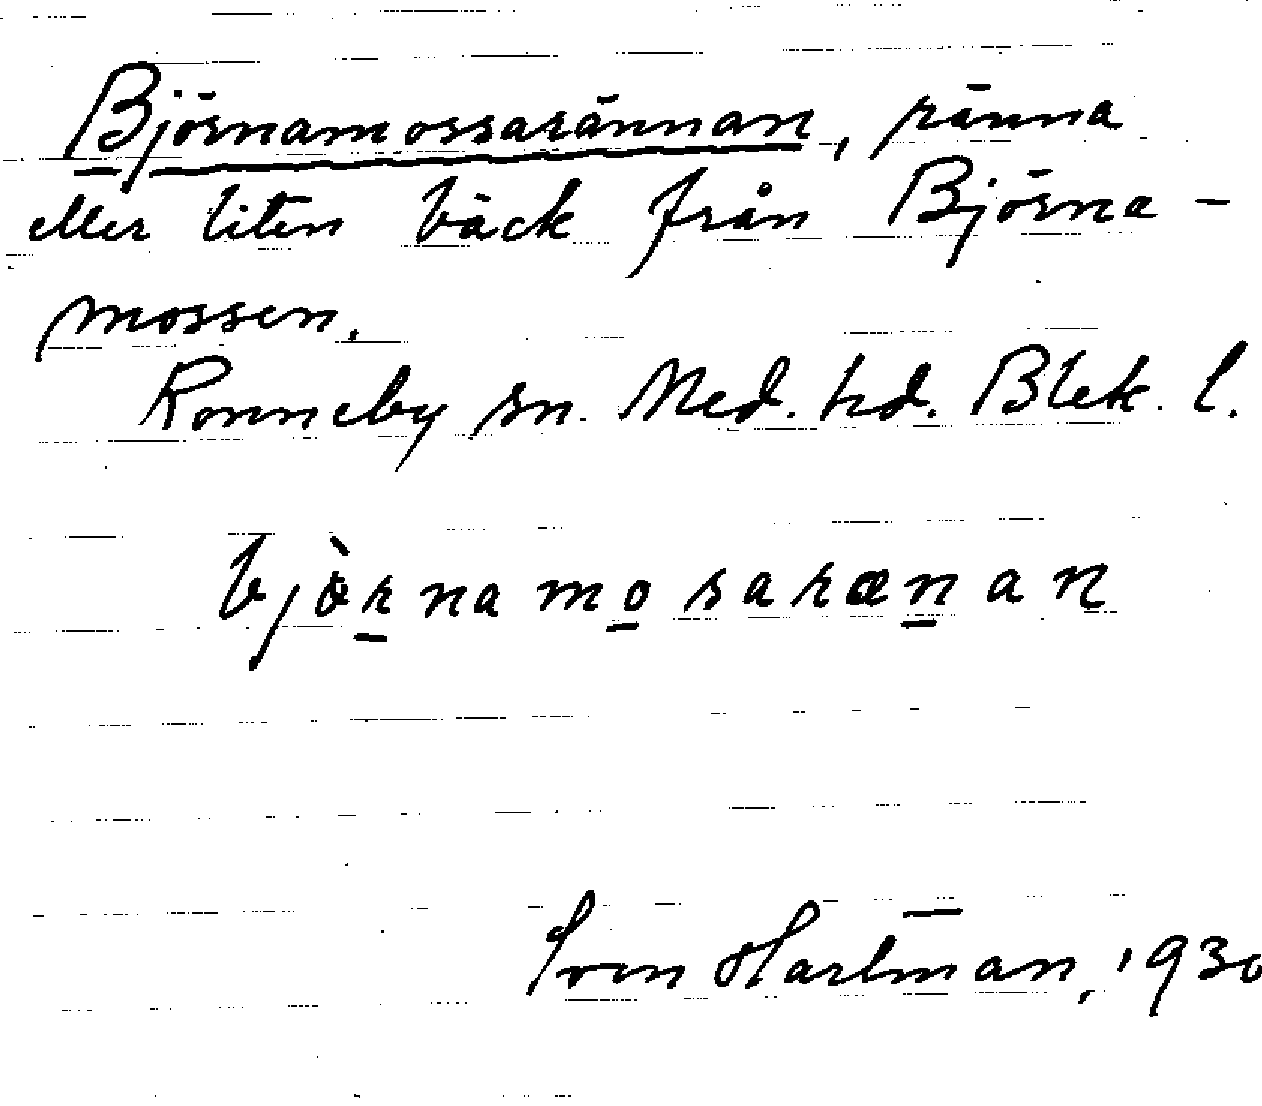 Björnamossarännan, ränna
eller liten bäck från Björna-
mossen.
Ronneby sn. Med. hd. Blek. l.
bjòrnamosarænan
Sven Hartman, 1930